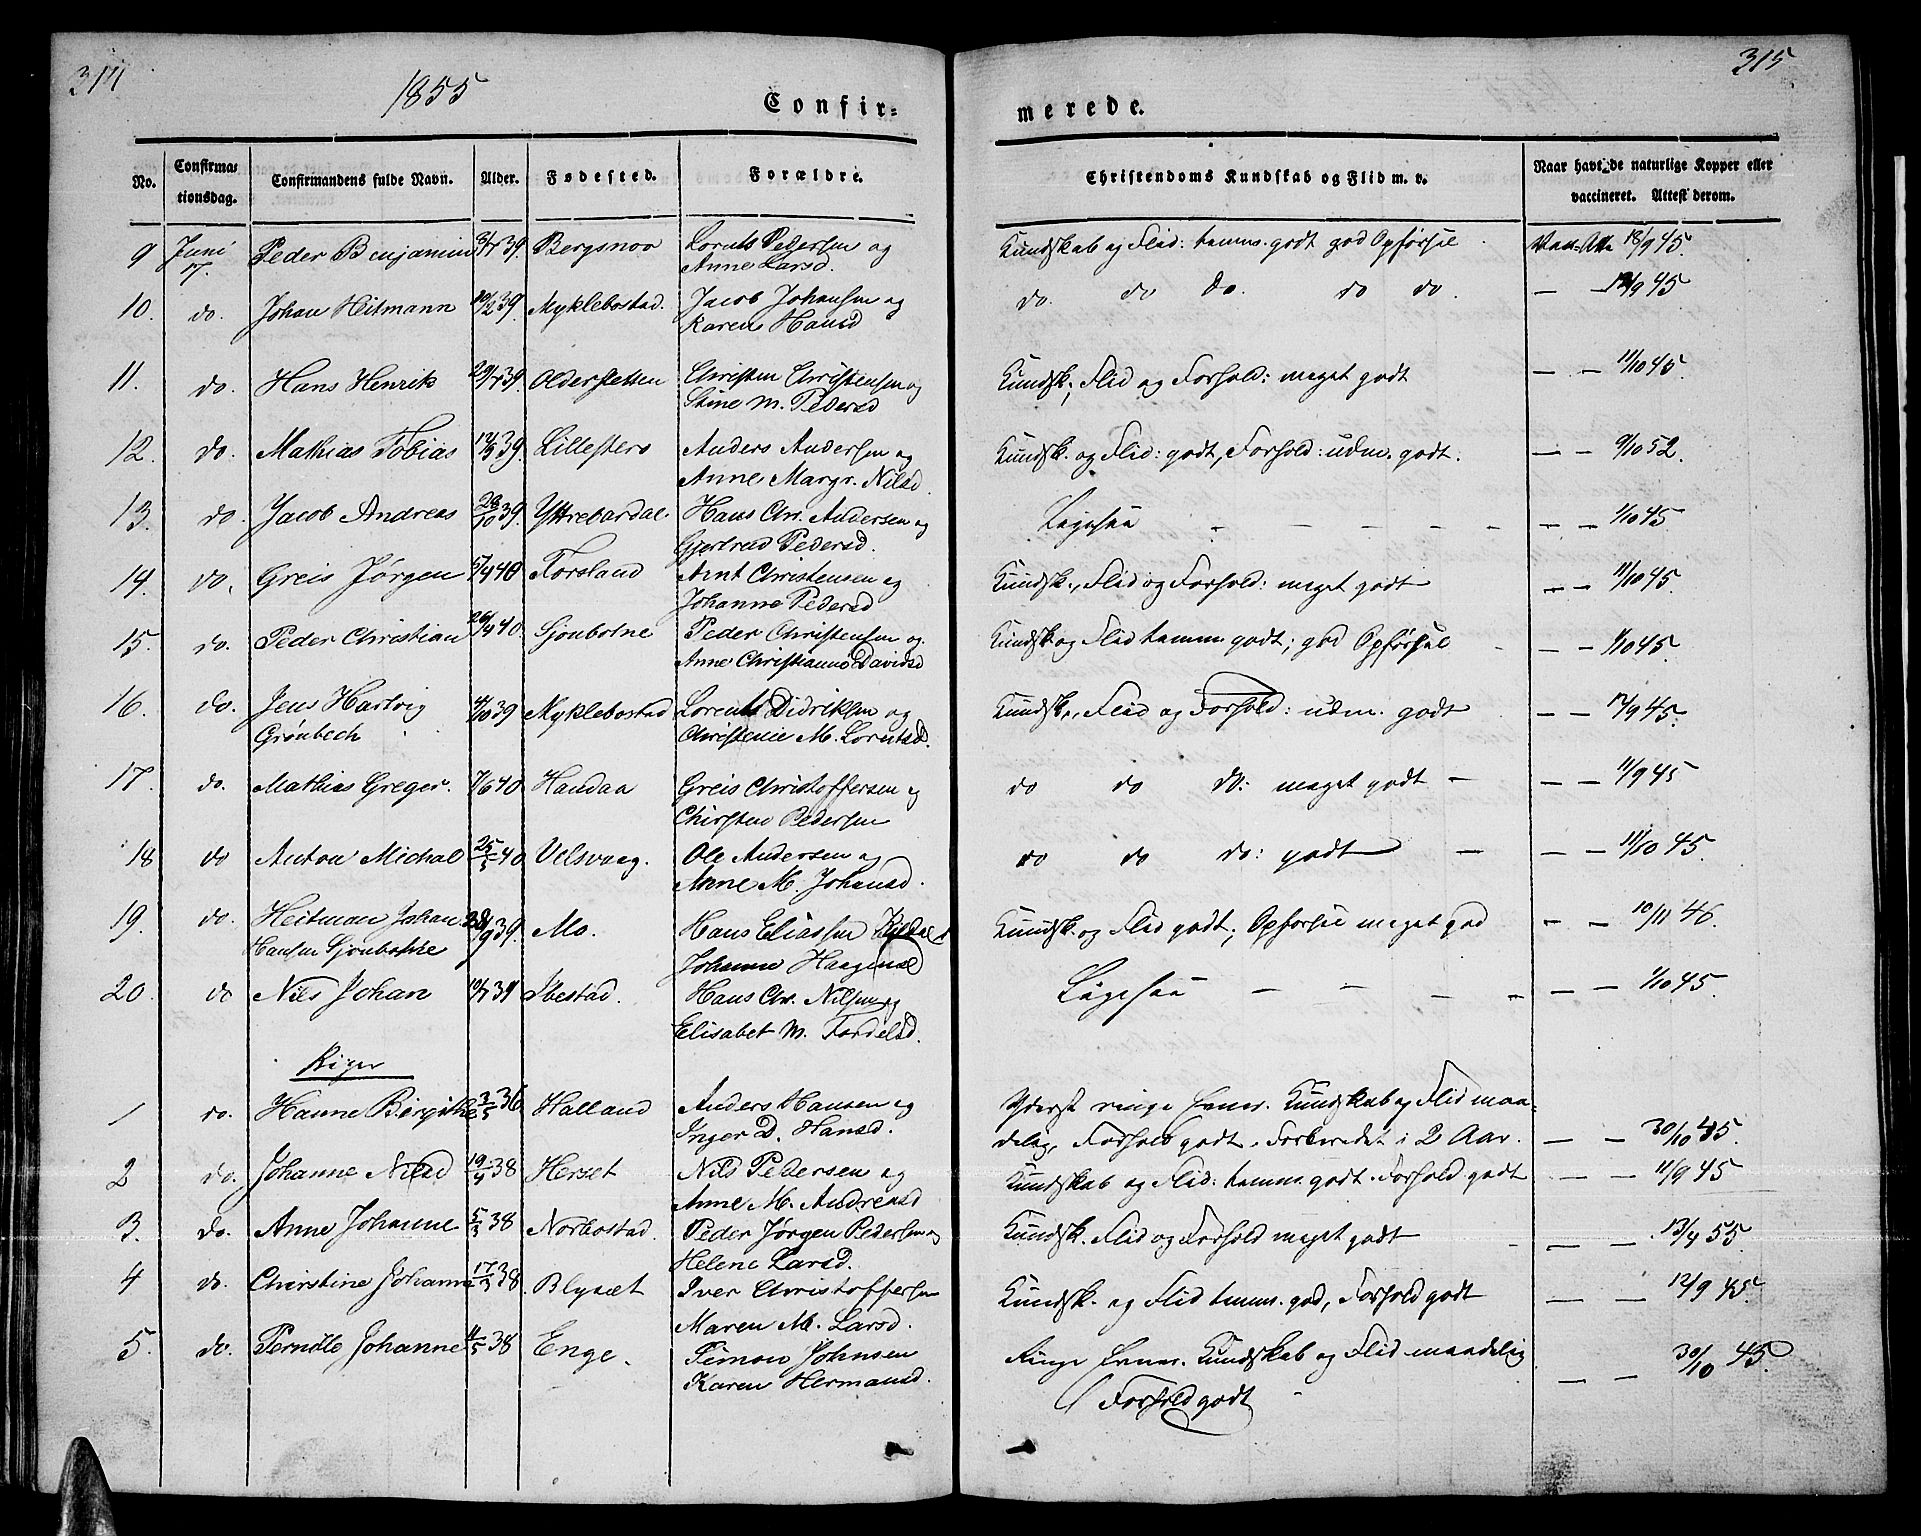 314
1855
Confir=
No.
Confirma=
tionsdag.
Confirmandens fulde Navn.
Alder.
Fødested.
Forældre.
9 Juni 17. Peder Benjamin 39. Bergsnoo Lorents Pedersen og
Anne Larsd.
10. do. Johan Heitmann 10/2 39. Myklebostad. Jacob Johansen og
Karen Hansd
11. do. Hans Henrik 39. Oldersletten Christen Christensen og
Stine M. Pedersd
12. do. Mathias Tobias 39. Lillesters Anders Andersen og
Anne Margr. Nilsd
13. do. Jacob Andreas 28/10 39. Yttrebardal. Hans Chr. Andersen og
Gjertrud Pedersd.
14. do. Greis Jørgen 40 Forsland Arnt Christensen og
Johanne Pedersd
15. do. Peder Christian 26/4 40. Sjonbotne Peder Christensen og
Anne Christianna Davidsd
16. do. Jens Hartvig 39 Myklebostad Lorents Didriksen og
Grønbech Christence M. Lorntsd.
17. do. Mathias Greger. 7/6 40. Handaa Greis Christoffersen og
Chirsten Pedersen
18 do Anton Michal 25/5 40 Velsvaag. Ole Andersen og
Anne M. Johansd.
19. do. Heitman Johan 39. Mo. Hans Eliassen
Hansen Sjonbotne Johanna Haagensd
20. do Nils Johan 39 Ibestad. Hans Chr. Nilsen og
Elisabet M. Fordelsd.
Piger
1 do. Hanne Birgithe 3/5 36 Halland Anders Hansen og
Inger D. Hansd.
2 do. Johanne Nilsd 19/4 38 Herset Nils Pedersen og
Anne M. Andreasd
3. do. Anne Johanne 5/3 38 Norbostad. Peder Jørgen Pedersen og
Helene Larsd.
4 do. Chirstine Johanna 17/3 38 Blysæt Iver Christoffersen
Maren M. Larsd.
5. do. Pernille Johanne 11/5 38 Enge. Simon Johnsen
Karen Hermansd.
315
merede.
Christendoms Kundskab og Flid m. v.
Naar havt de naturlige Kopper eller
vaccineret. Attest derom.
Kundskab og Flid: temm. godt god Opførsel Vac. Att. 18/9 45.
do. do do. do do. — 12/9 45
Kundsk., Flid og Forhold: meget godt — — 11/10 45.
Kundsk. og Flid: godt, Forhold: udm. godt. — — 9/10 52.
Ligesaa - — — — - - — — 1/10 45
Kundsk., Flid og Forhold: meget godt — — 11/10 45.
Kundsk og Flid temm. godt; god Opførsel — — 1/10 45.
Kundsk., Flid og Forhold: udm. godt — — 12/9 45.
do do do: meget godt — — — 11/9 45
do do do: godt — — — 11/10 45.
Kundsk. og Flid godt; Opførsel meget god — — 10/11 46.
Ligesaa — — — — — — — 1/10 45.
Yderst ringe Evner. Kundskab og Flid maa-
delig, Forhold godt. Forberedet i 2 Aar. — — 30/10 45.
Kundskab og Flid: temm. godt. Forhold godt — — 11/9 45
Kundsk. Flid og Forhold meget godt — — 13/4 55.
Kundsk. og Flid temm. god, Forhold godt — — 12/9 45.
Ringe Evner. Kundskab og Flid maadelig — — 30/10 45.
Forhold godt